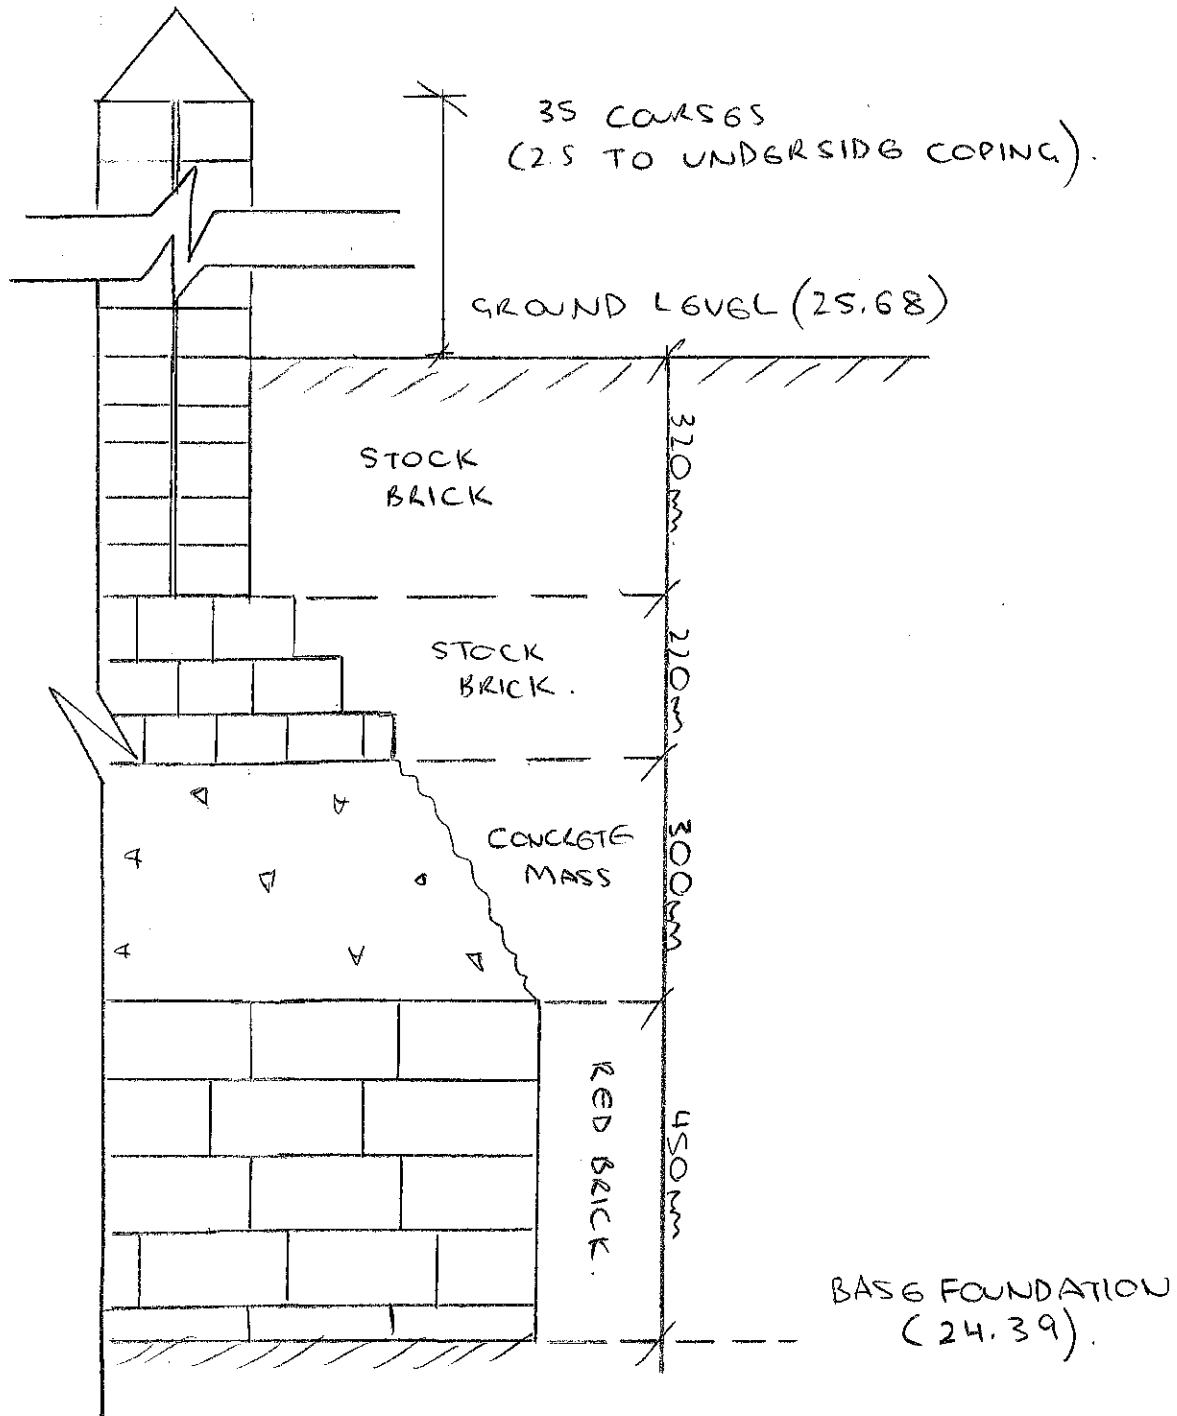 35 COURSES
(2.5 TO UNDERSIDE COPING).
GROUND LEVEL (25.68)
320mm.
STOCK
BRICK
220mm
STOCK
BRICK.
300mm
CONCRETE
MASS
450mm
RED BRICK.
BASE FOUNDATION
(24.39).